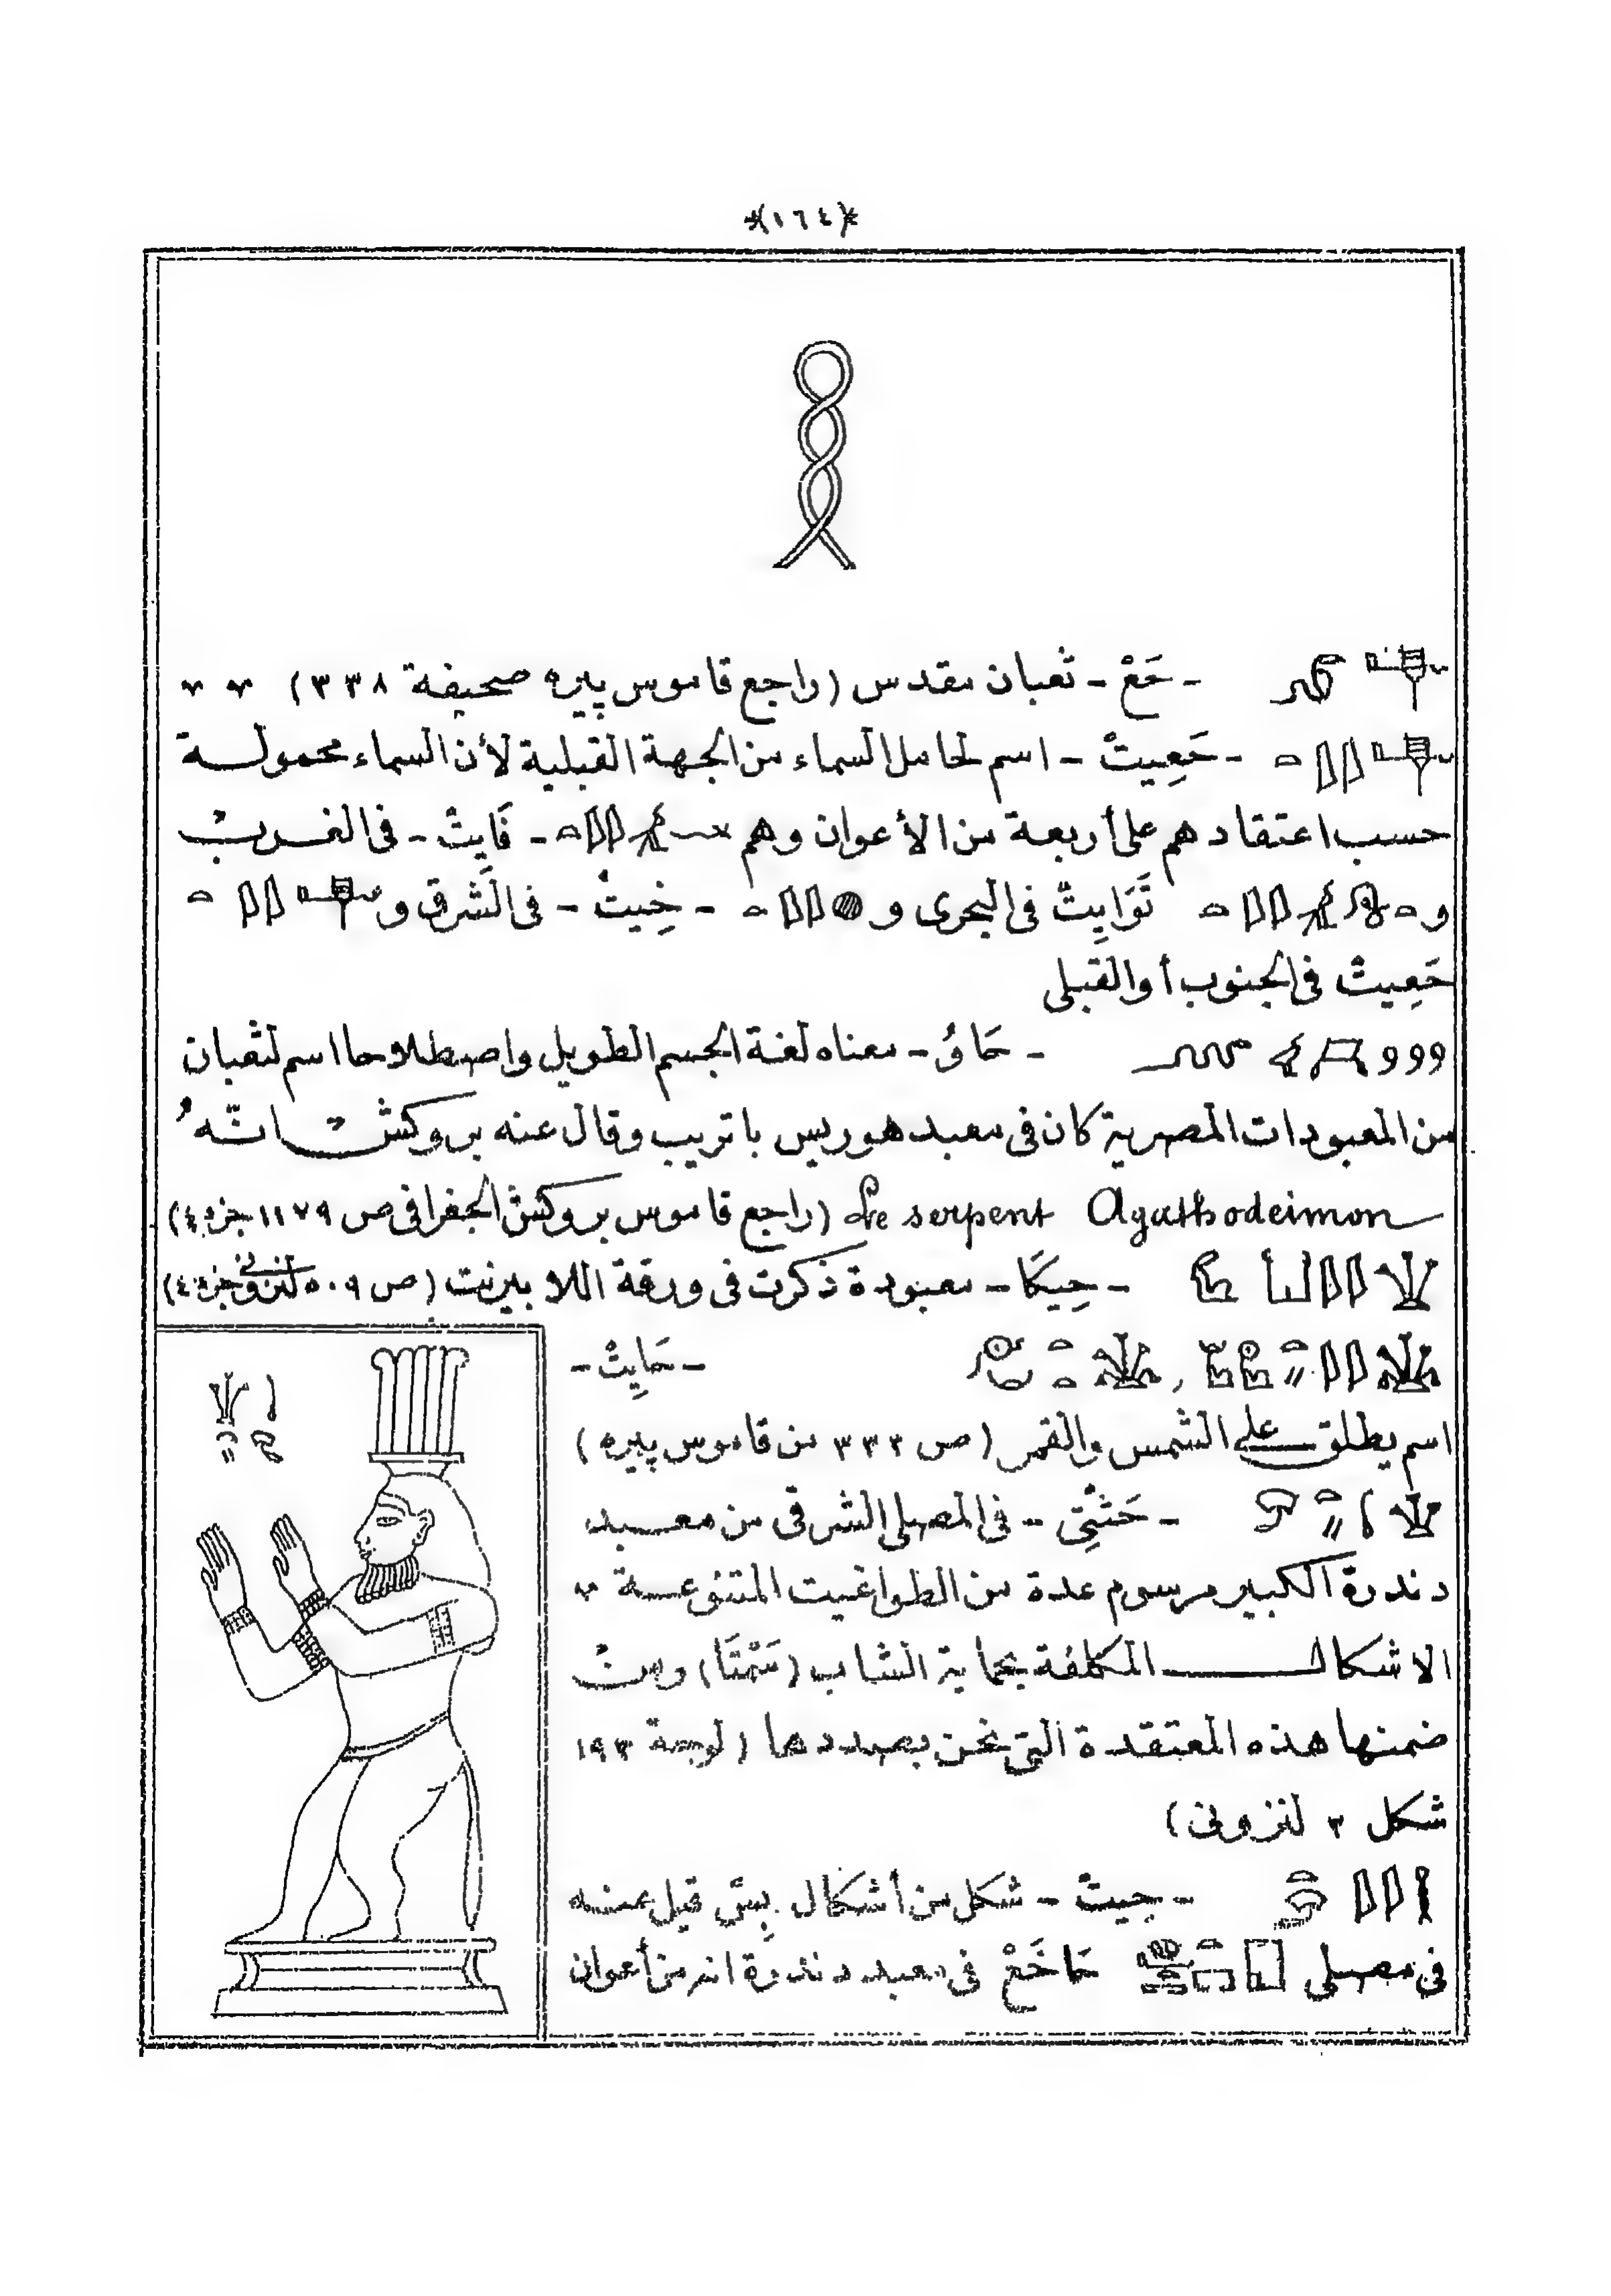 *(١٦٤)*
- حَعْ - ثعبان مقدس (راجع قاموس پيره صحيفة ٣٣٨)
- حَعِيتْ - اسم لحامل السماء من الجهة القبلية لأن السماء محمولة
حسب اعتقادهم على أربعة من الأعوان وهم - فَايِتْ - فى الغرب
و تَوَايِتْ فى البحرى و - خِيتْ - فى الشرق و
حَعِيتْ فى الجنوب أو القبلى
- حَاوُ - معناه لغة الجسم الطويل واصطلاحا اسم لثعبان
من المعبودات المصرية كان فى معبد هوريس باتريب وقال عنه بروكش انّه
Le serpent Agathodeimon (راجع قاموس بروكش الجغرافى ص ١١٧٩ جزء ٤)
- حِيكَا - معبودة ذكرت فى ورقة اللابيرنت (ص ٥٠٩ لنزونى جزء ٤)
- حَايِتْ -
اسم يطلق على الشمس والقمر (ص ٣٣٣ من قاموس پيره)
- حَتْتِى - فى المصلى الشرقى من معبد
دندرة الكبير مرسوم عدة من الطواغيت المتنوعة
الاشكال المكلفة بحماية الشاب (سَمْتَا) ومن
ضمنها هذه المعتقدة التى نحن بصددها (لوحة ١٩٣
شكل ٣ لنزونى)
- حِيتْ - شكل من أشكال بِسّ قيل عنه
فى مصلى حَاخَعْ فى معبد دندرة انه من أعوان